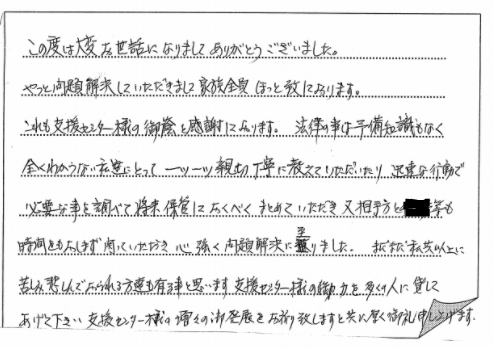 この度は大変お世話になりましてありがとうございました。
やっと問題解決していただきまして家族全員ほっと致しております。
これも支援センター様の御蔭と感謝しております。 法律の事は予備知識もなく
全くわからない私達にとって 一ツ一ツ親切丁寧に教えていただいたり 迅速な行動で
必要な事を調べて将来保管しておくべく まとめていただき 又相手方と 等も
時間をもおしまず 聞いていただき 心強く問題解決に至りました。 まだまだ私共以上に
苦しみ悲しんでおられる方達も有る事と思います 支援センター様の御力を多くの人に貸して
あげて下さい 支援センター様の増々の御発展をお祈り致しますと共に厚く御礼申し上げます。